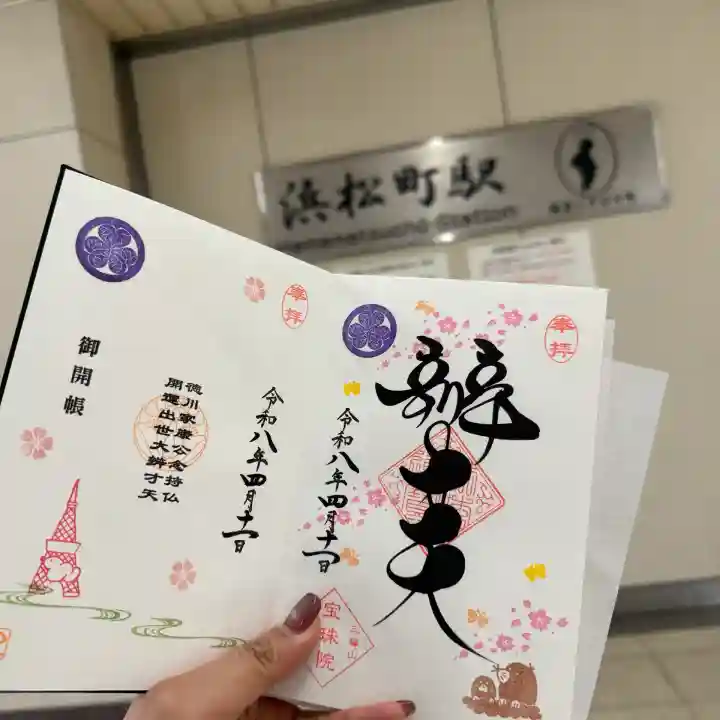 浜松町駅
Hamamatsucho Station
奉拝
辨才天
令和八年四月十一日
三縁山
宝珠院
奉拝
令和八年四月十一日
徳川家康公念持仏
開運出世大辨才天
御開帳